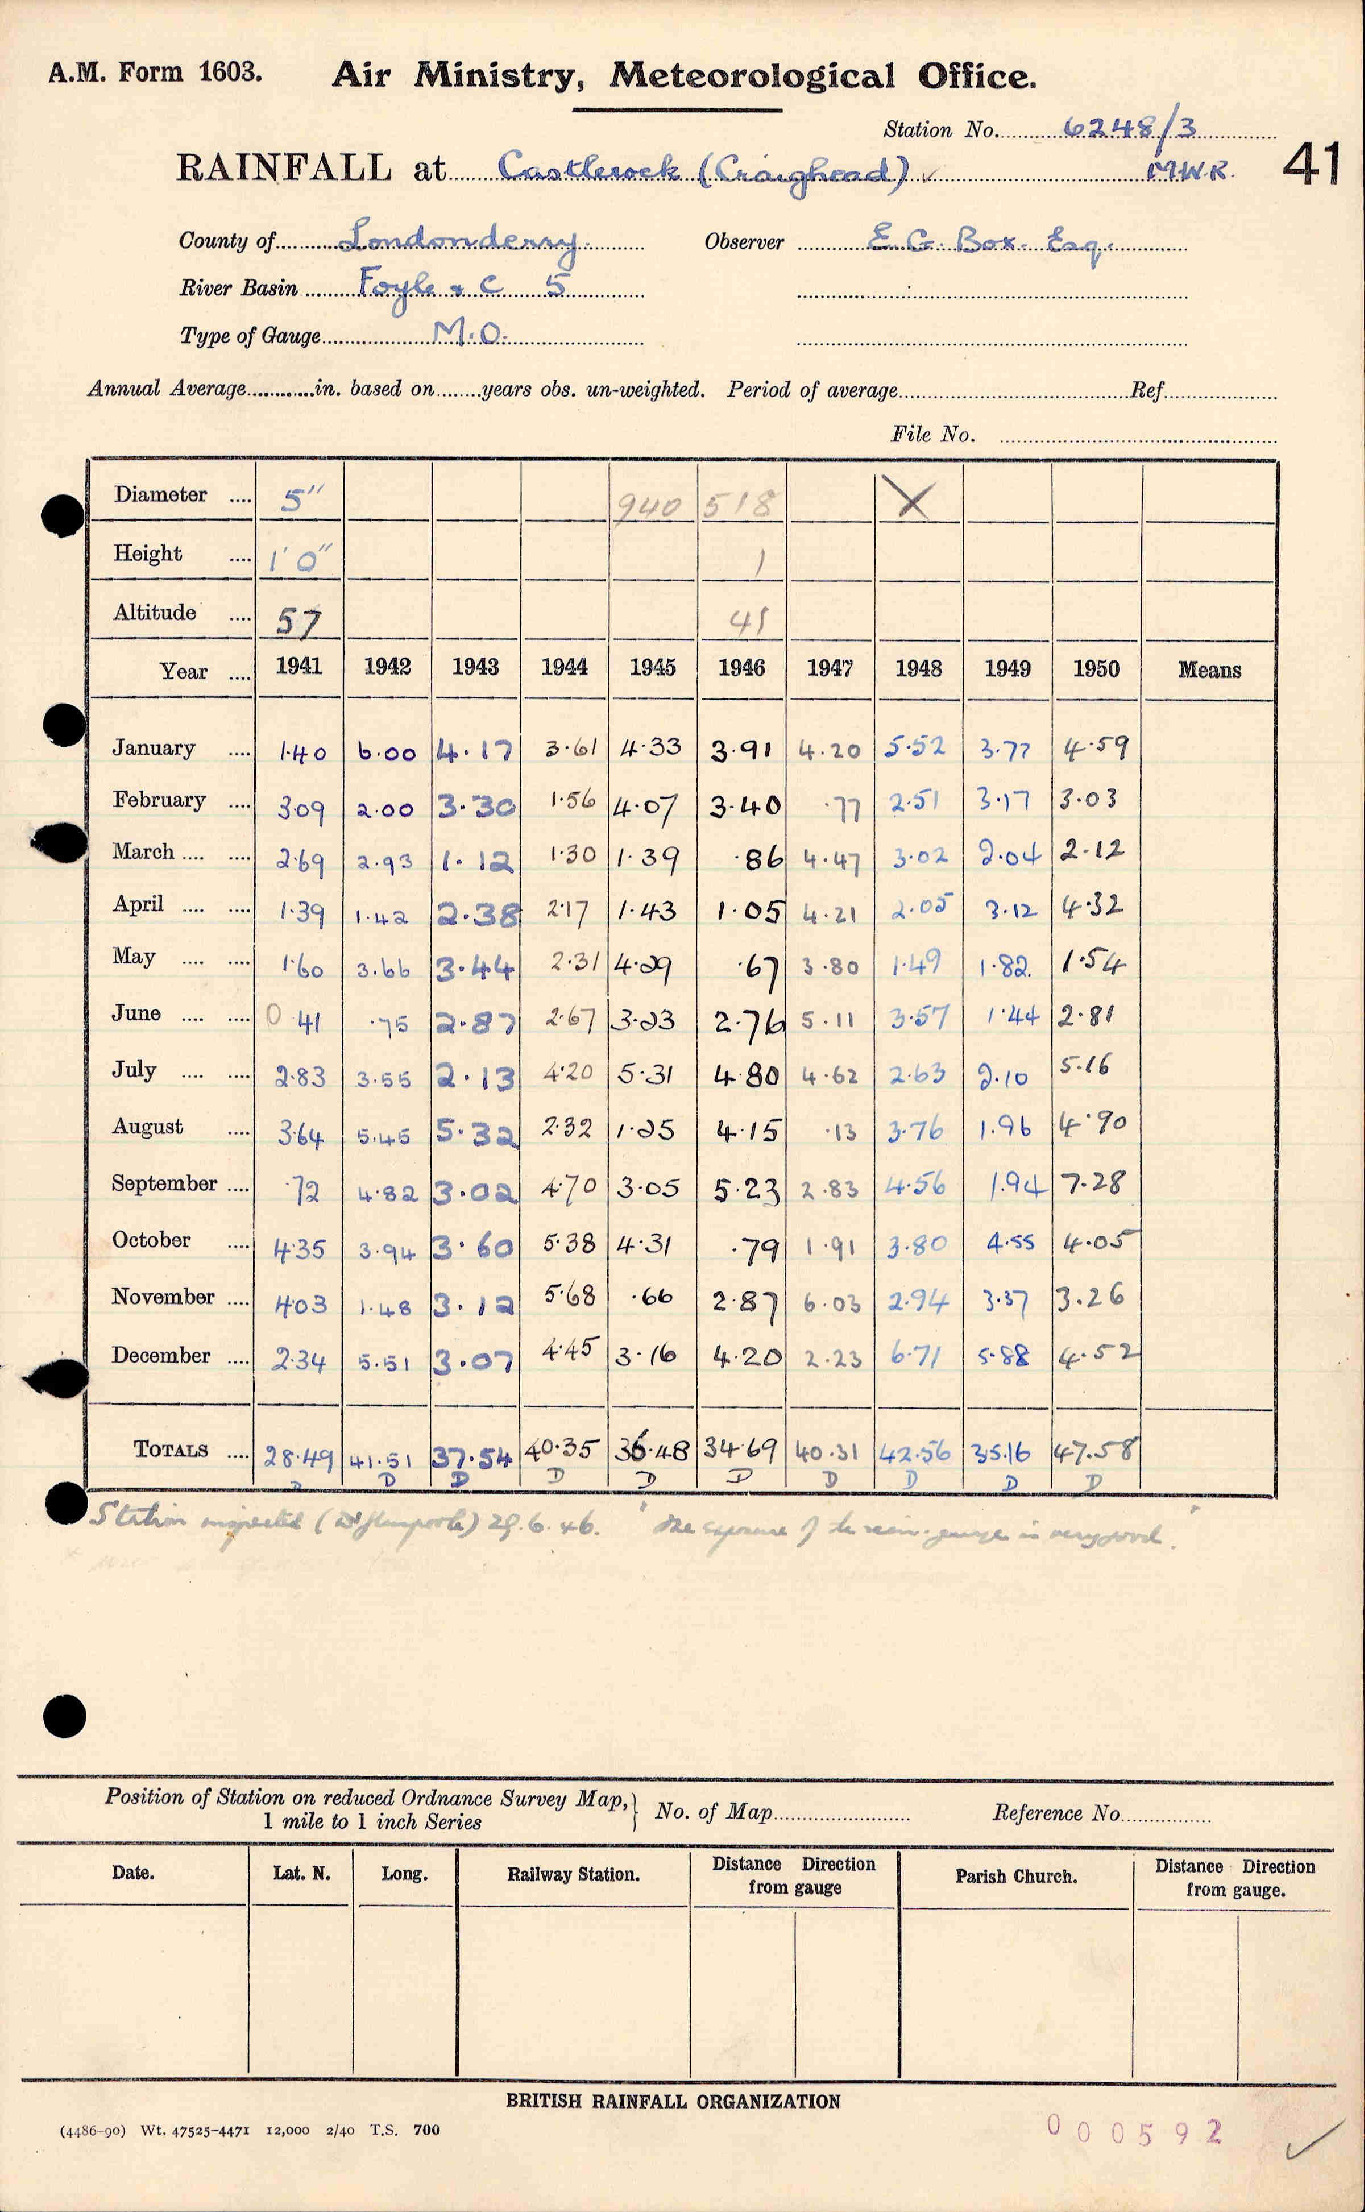 A.M. Form 1603. Air Ministry, Meteorological Office.
Station No. 6248/3
RAINFALL at Castlerock (Craighead) ✓ M.W.R. 41
County of Londonderry. Observer E. G. Box. Esq.
River Basin Foyle & C 5
Type of Gauge M.O.
Annual Average in. based on years obs. un-weighted. Period of average Ref.
File No.
Diameter .... 5" 940 518 X
Height .... 1' 0" 1
Altitude .... 57 41
Year .... 1941 1942 1943 1944 1945 1946 1947 1948 1949 1950 Means
January .... 1.40 6.00 4.17 3.61 4.33 3.91 4.20 5.52 3.77 4.59
February .... 3.09 2.00 3.30 1.56 4.07 3.40 .77 2.51 3.17 3.03
March .... .... 2.69 2.93 1.12 1.30 1.39 .86 4.47 3.02 2.04 2.12
April .... .... 1.39 1.42 2.38 2.17 1.43 1.05 4.21 2.05 3.12 4.32
May .... .... 1.60 3.66 3.44 2.31 4.29 .67 3.80 1.49 1.82 1.54
June .... .... 0.41 .75 2.87 2.67 3.23 2.76 5.11 3.57 1.44 2.81
July .... .... 2.83 3.55 2.13 4.20 5.31 4.80 4.62 2.63 2.10 5.16
August .... 3.64 5.45 5.32 2.32 1.25 4.15 .13 3.76 1.96 4.90
September .... .72 4.82 3.02 4.70 3.05 5.23 2.83 4.56 1.94 7.28
October .... 4.35 3.94 3.60 5.38 4.31 .79 1.91 3.80 4.55 4.05
November .... 4.03 1.48 3.12 5.68 .66 2.87 6.03 2.94 3.37 3.26
December .... 2.34 5.51 3.07 4.45 3.16 4.20 2.23 6.71 5.88 4.52
TOTALS .... 28.49 41.51 37.54 40.35 36.48 34.69 40.31 42.56 35.16 47.58
D D D D D D D D D D
Station inspected 29.6.46. "The exposure of the rain-gauge is very good."
Position of Station on reduced Ordnance Survey Map, 1 mile to 1 inch Series } No. of Map Reference No.
Date. Lat. N. Long. Railway Station. Distance Direction from gauge Parish Church. Distance Direction from gauge.
BRITISH RAINFALL ORGANIZATION
(4486-90) Wt. 47525-4471 12,000 2/40 T.S. 700
000592 ✓